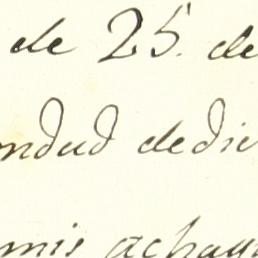 de 25. de
ndud dedic
mis achaq